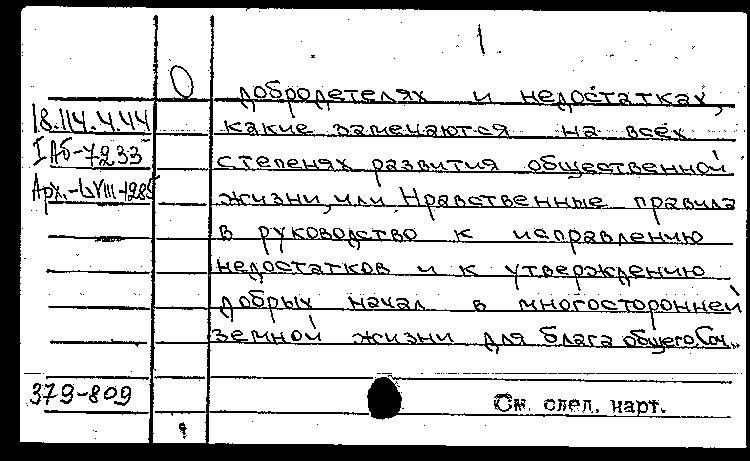 1.
О добродетелях и недостатках,
18.114.4.44 какие замечаются на всех
I Аб-7233 степенях развития общественной
Арх.-LVIII-285 жизни, или Нравственные правила
в руководство к исправлению
недостатков и к утверждению
добрых начал в многосторонней
земной жизни для блага общего. Соч.
379-809 См. след. карт.